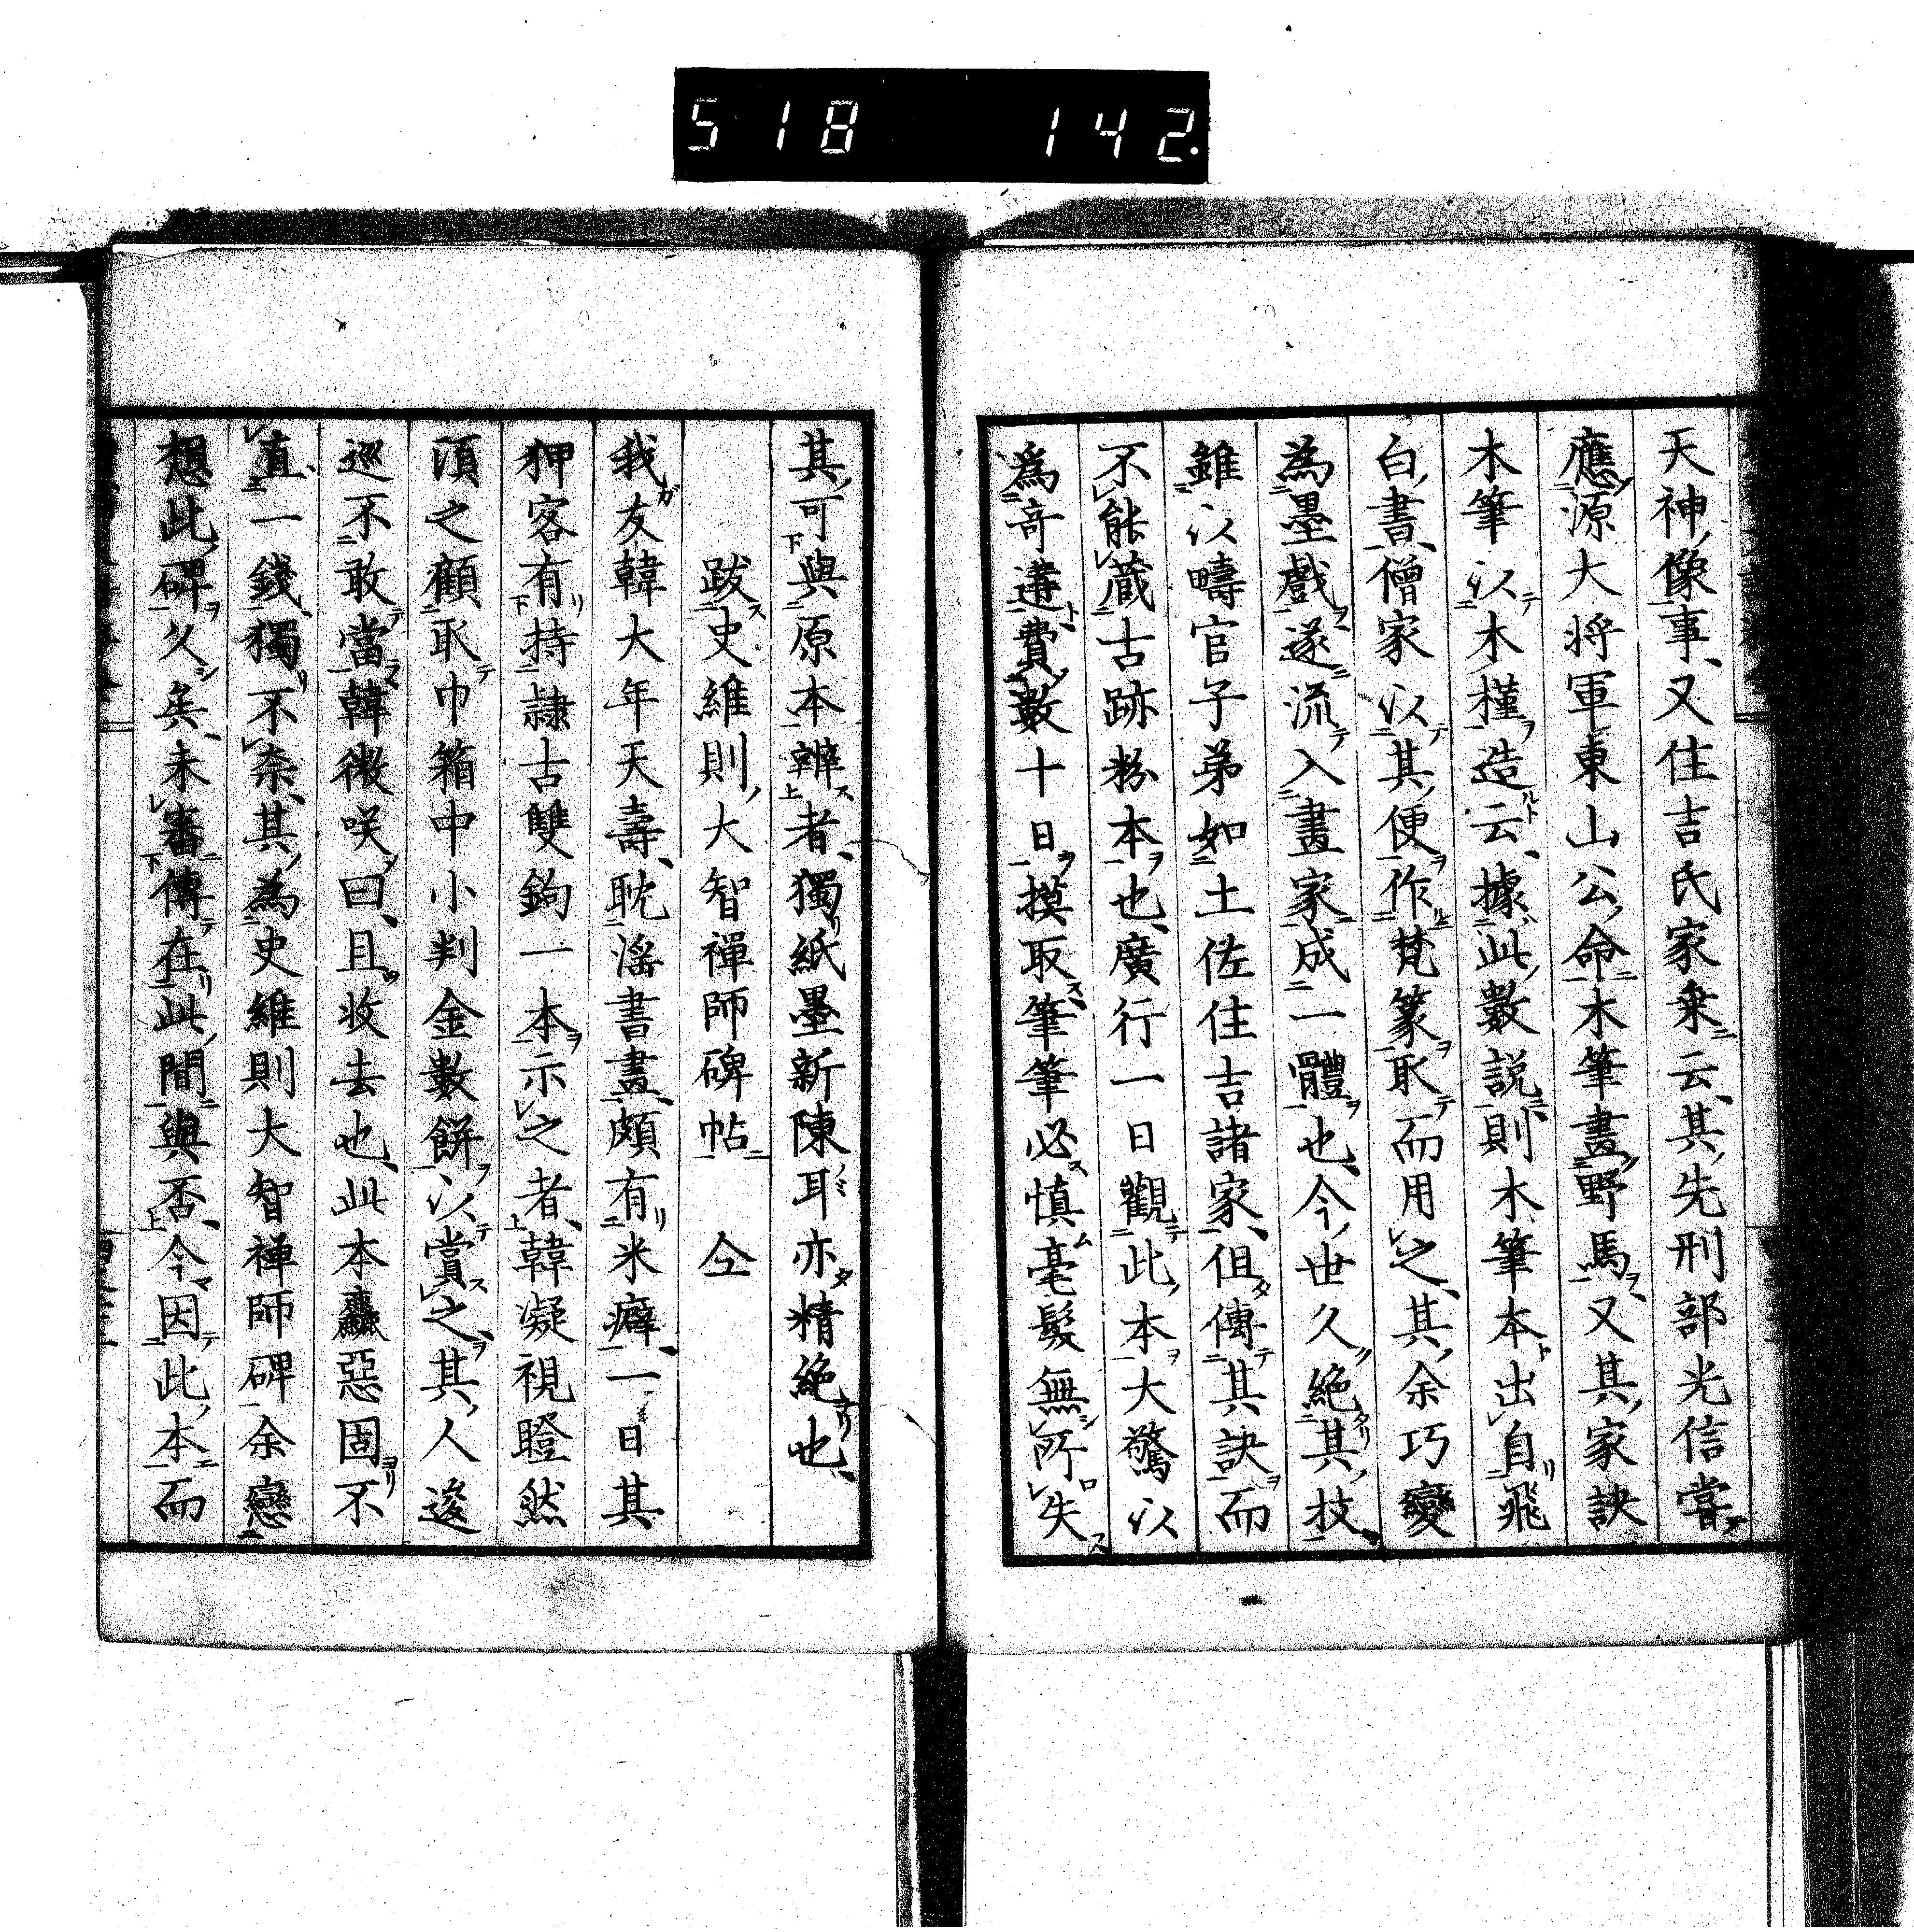 518 142.
天神像事又住吉氏家乗云其先刑部光信嘗
應源大将軍東山公命木筆畫野馬又其家訣
木筆以木槿造云據此數説則木筆本出自飛
白書僧家以其便作梵篆取而用之其余巧變
為墨戲遂流入畫家成一體也今世久絶其技
雖以疇官子弟如土佐住吉諸家但傳其訣而
不能蔵古跡粉本也廣行一日觀此本大驚以
為奇遘費數十日摸取筆筆必慎毫髮無所失
其可與原本辨者獨紙墨新陳耳亦精絶也
跋史維則大智禪師碑帖 仝
我友韓大年天壽耽滛書畫頗有米癖一日其
狎客有持隷古雙鉤一本示之者韓凝視瞪然
須之顧取巾箱中小判金數餅以賞之其人逡
巡不敢當韓微咲曰且收去也此本麤惡固不
直一錢獨不柰其為史維則大智禅師碑余戀
想此碑久矣未審傳在此間與否今因此本而